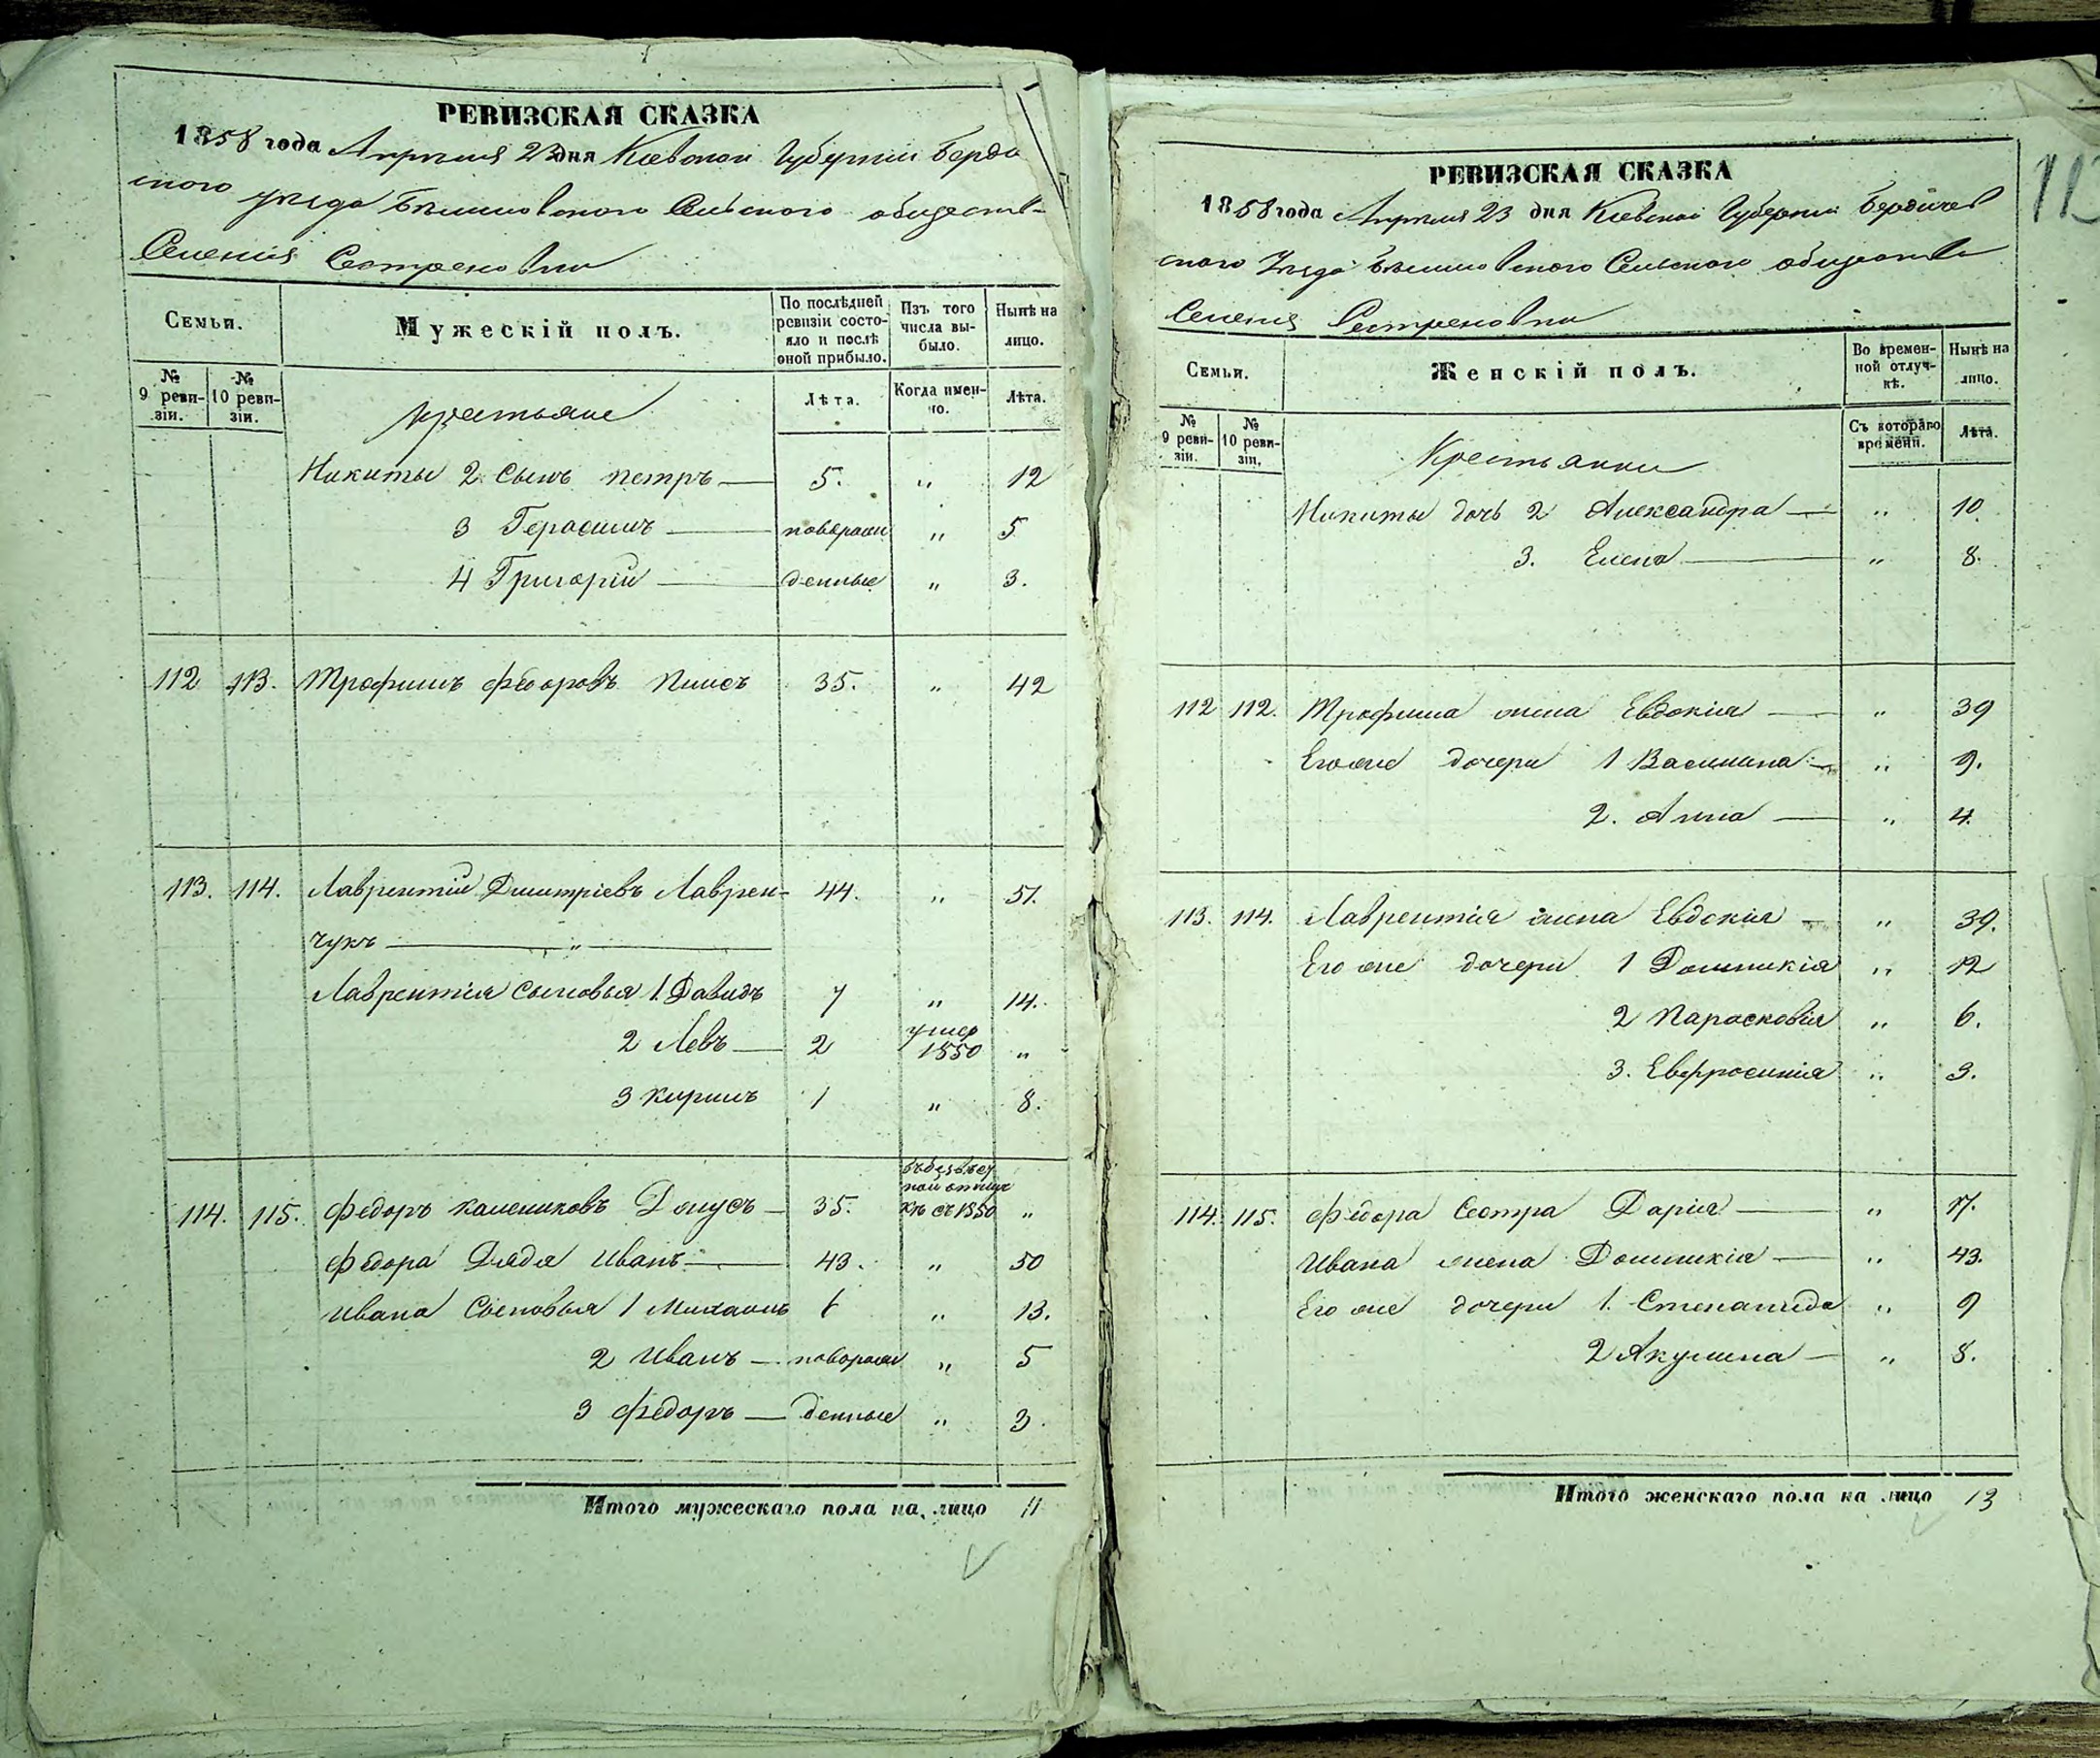 РЕВИЗСКАЯ СКАЗКА
1858 года Апреля 23 дня Киевской Губернии Берди
ского уезда Селского обществ-
Селения Сестреновки
Семьи.
Мужескій полъ.
По послѣдней ревизіи состояло и послѣ оной прибыло.
Изъ того числа выбыло.
Нынѣ на лицо.
№ 9 ревизіи.
№ 10 ревизіи.
крестьяне
Лѣта.
Когда именно.
Лѣта.
Никиты 2 Сынъ петръ — 5. „ 12
3 Герасимъ — новорож „ 5
4 Григорій — денные „ 3.
112 113. Трофимъ Федоровъ 35. „ 42
113. 114. Лаврентій Дмитріевъ Лаврен- 44. „ 51.
чукъ — „ —
Лаврентія Сыновья 1. Давидъ 7 „ 14.
2 Левъ — 2 умер 1850 „
3 Кирилъ 1 „ 8.
114. 115. Федоръ Донусъ — 35. въ безвест ной отлуч кѣ съ 1850 „
Федора Дядя Иванъ — 43. „ 50
Ивана Сыновья 1 Михаилъ 6 „ 13.
2 Иванъ — новорож „ 5
3 Федоръ — денные „ 3.
Итого мужескаго пола на лицо 11
РЕВИЗСКАЯ СКАЗКА
1858 года Апреля 23 дня Киевской Губернии Бердичев
ского Уезда Селского общества
Селения Сестреновки
Семьи.
Женскій полъ.
Во временной отлучкѣ.
Нынѣ на лицо.
№ 9 ревизіи.
№ 10 ревизіи.
Крестьянки
Съ котораго времени.
Лѣта.
Никиты дочь 2 Александра — „ 10
3. Елена — „ 8.
112 112. Трофима жена Евдокія — „ 39
Его же дочери 1 Василина — „ 9.
2. Анна — „ 4.
113. 114. Лаврентія жена Евдокія — „ 39.
Его же дочери 1 Домникія „ 12
2 Парасковія „ 6.
3. Евфросинія „ 3.
114. 115. Федора Сестра Дарія — „ 17.
Ивана жена Домникія — „ 43.
Его же дочери 1. Степанида „ 9
2 Акулина — „ 8.
Итого женскаго пола на лицо 13